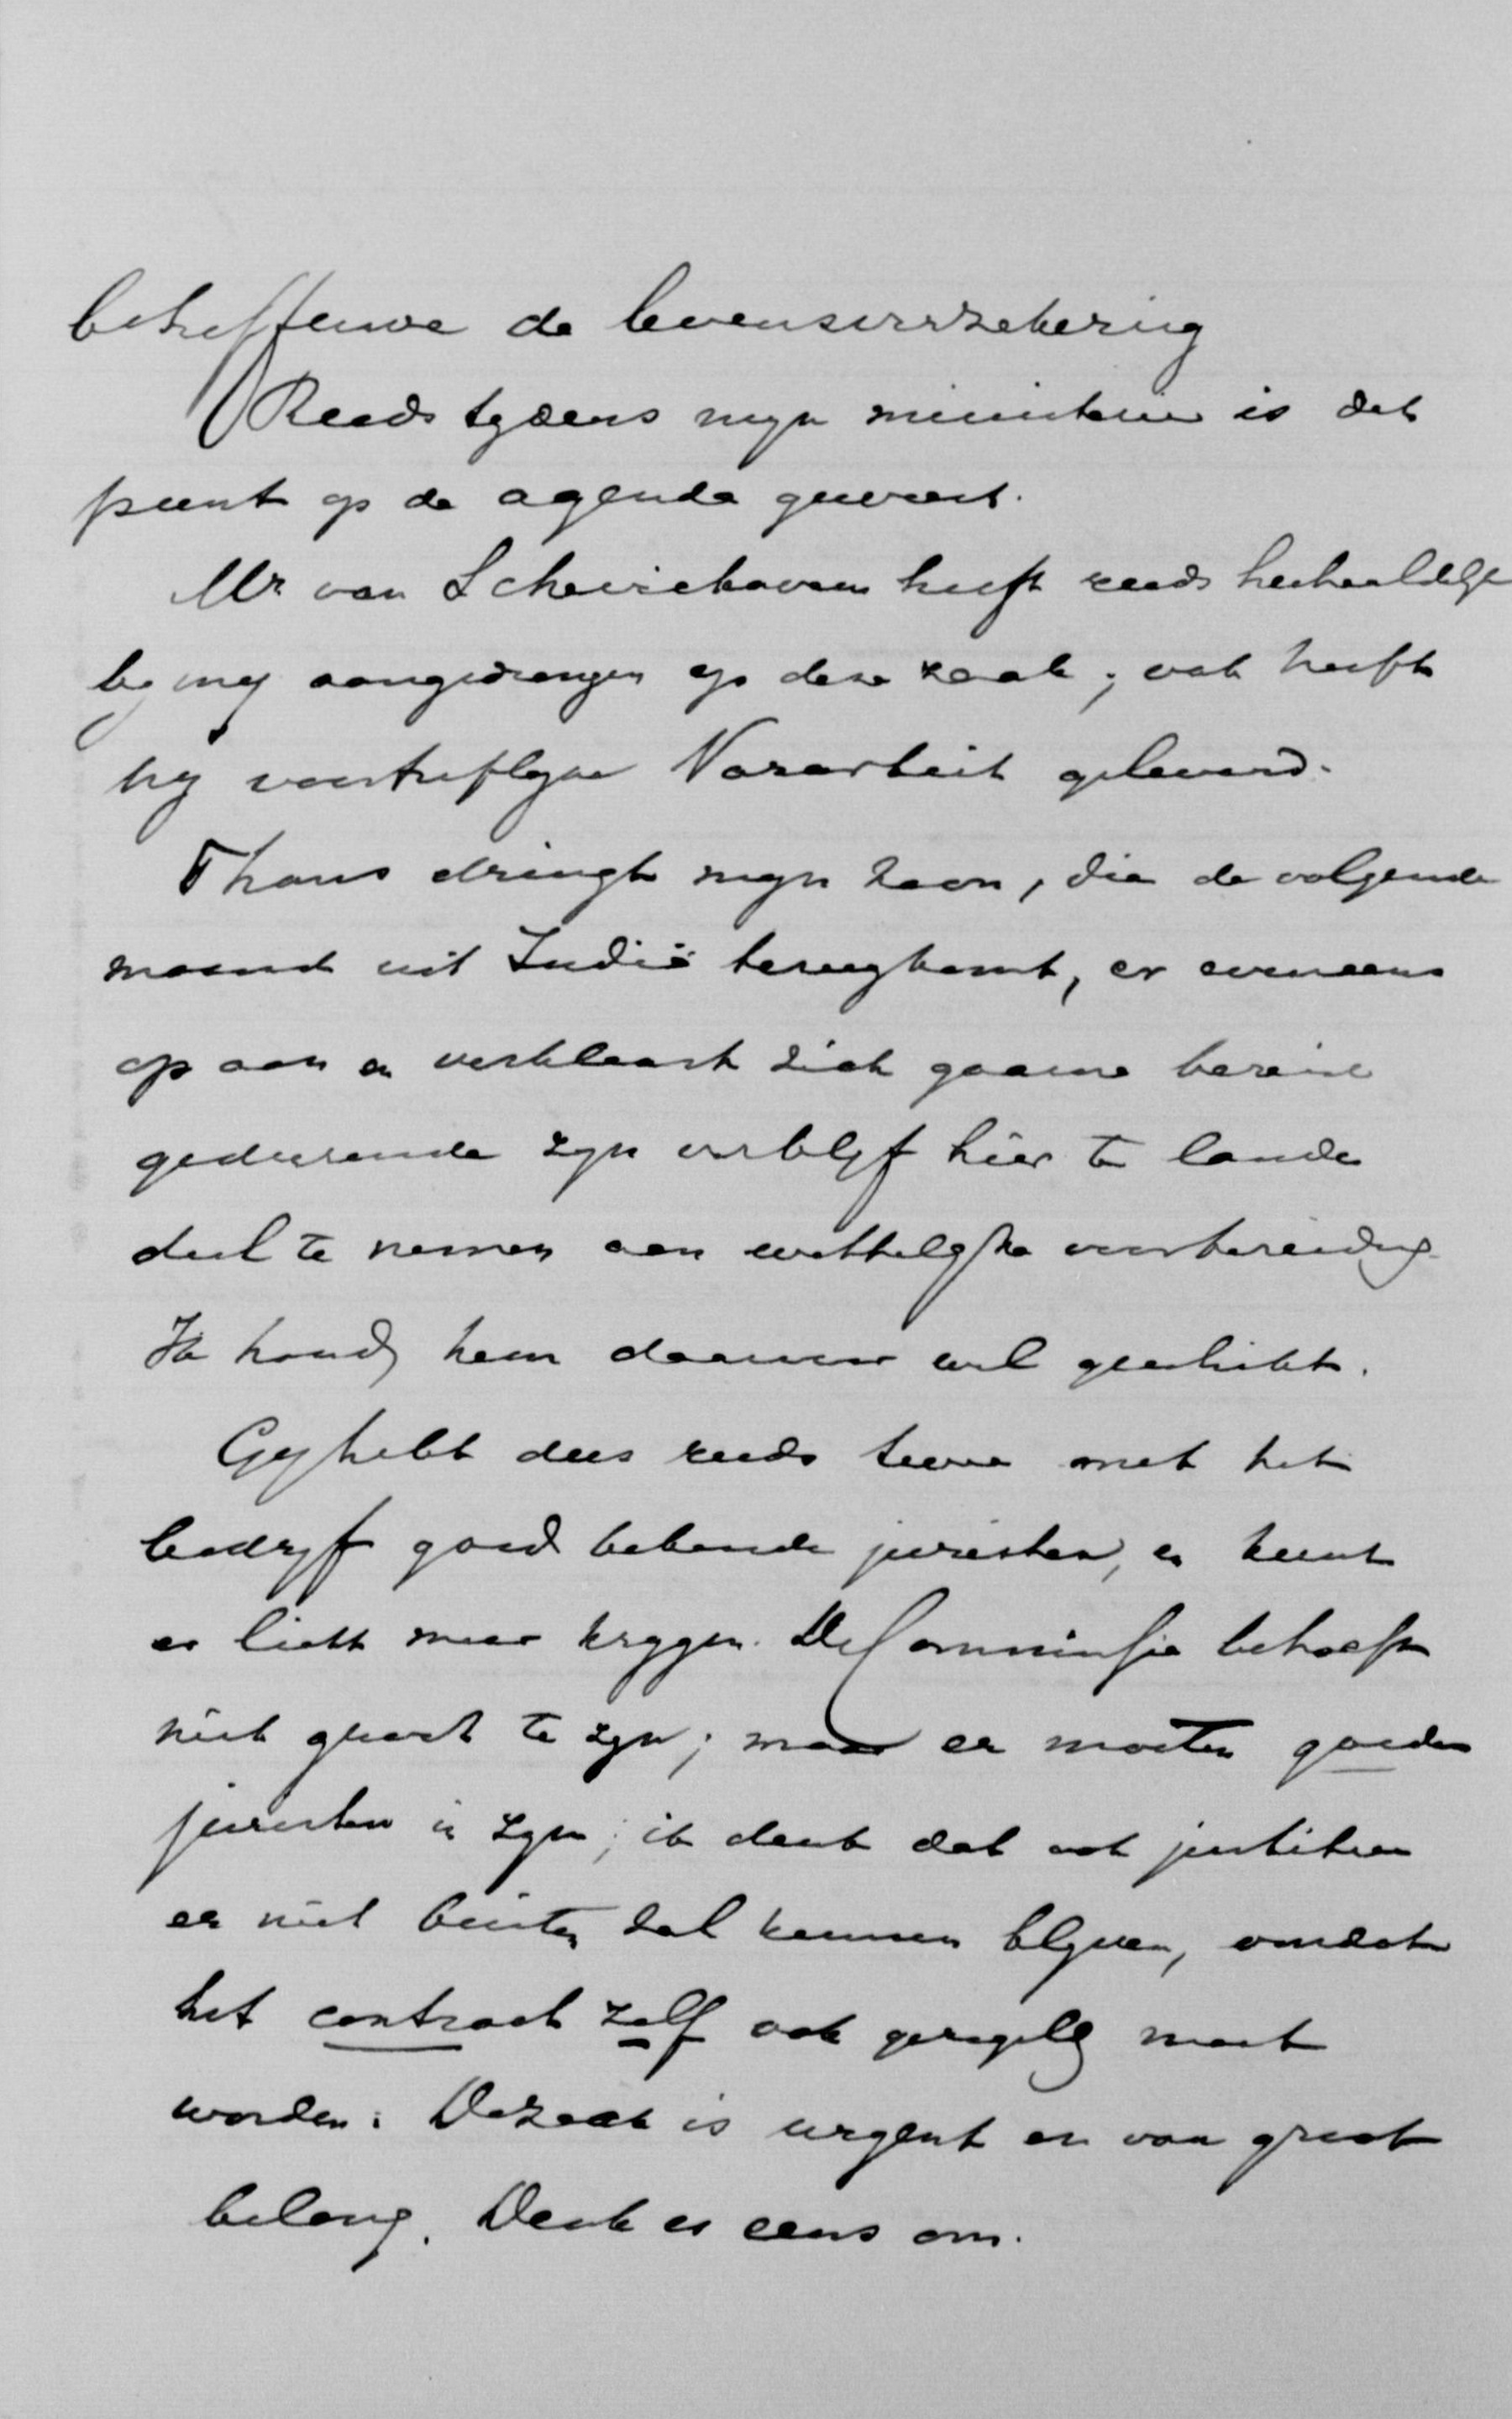 betreffende de levensverzekering
Reeds tydens myn ministerie is dat
punt op de agenda geweest.
Mr van Schevichaven heeft reeds herhaaldelyk
by my aangedrongen op deze zaak; ook heeft
hy voortreflyke Vorarbeit geleverd.
Thans dringt myn zoon, die de volgende
maand uit Indië terugkomt, er eveneens
op aan en verklaart zich gaarne bereid
gedurende zyn verblyf hier te lande
deel te nemen aan wettelyke voorbereiding.
Ik houd hem daarvoor wel geschikt.
Gy hebt dus reeds twee met het
bedryf goed bekende juristen, en kunt
er licht meer krygen. De Commissie behoeft
niet groot te zyn; maar er moeten goede
juristen in zyn; ik denk dat ook justitie
er niet buiten zal kunnen blyven, omdat
het contract zelf ook geregeld moet
worden. De zaak is urgent en van groot
belang. Denk er eens om.